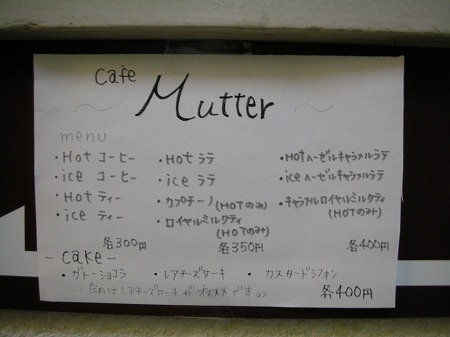 cafe
~ Mutter ~
menu
・Hot コーヒー
・ice コーヒー
・Hot ティー
・ice ティー
各300円
・Hot ラテ
・ice ラテ
・カプチーノ(HOTのみ)
・ロイヤルミルクティ
(HOTのみ)
各350円
・HOTヘーゼルキャラメルラテ
・iceヘーゼルキャラメルラテ
・キャラメルロイヤルミルクティ
(HOTのみ)
各400円
- cake -
・ガトーショコラ ・レアチーズケーキ ・カスタードシフォン
今日はレアチーズケーキがオススメです
各400円